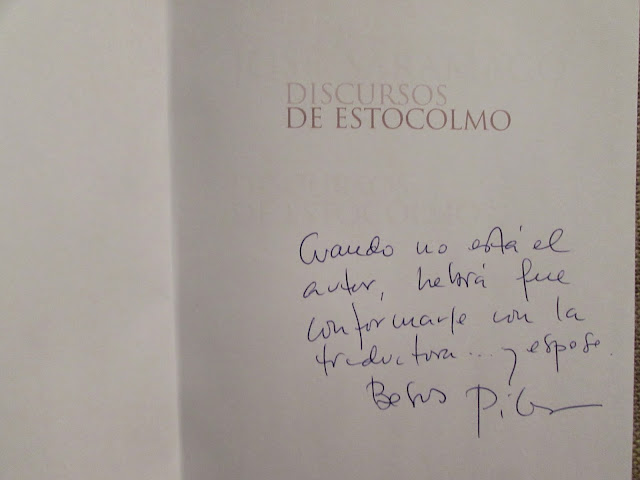 DISCURSOS
DE ESTOCOLMO
Cuando no está el
autor, habrá que
conformarse con la
traductora... y esposa.
Besos Pilar